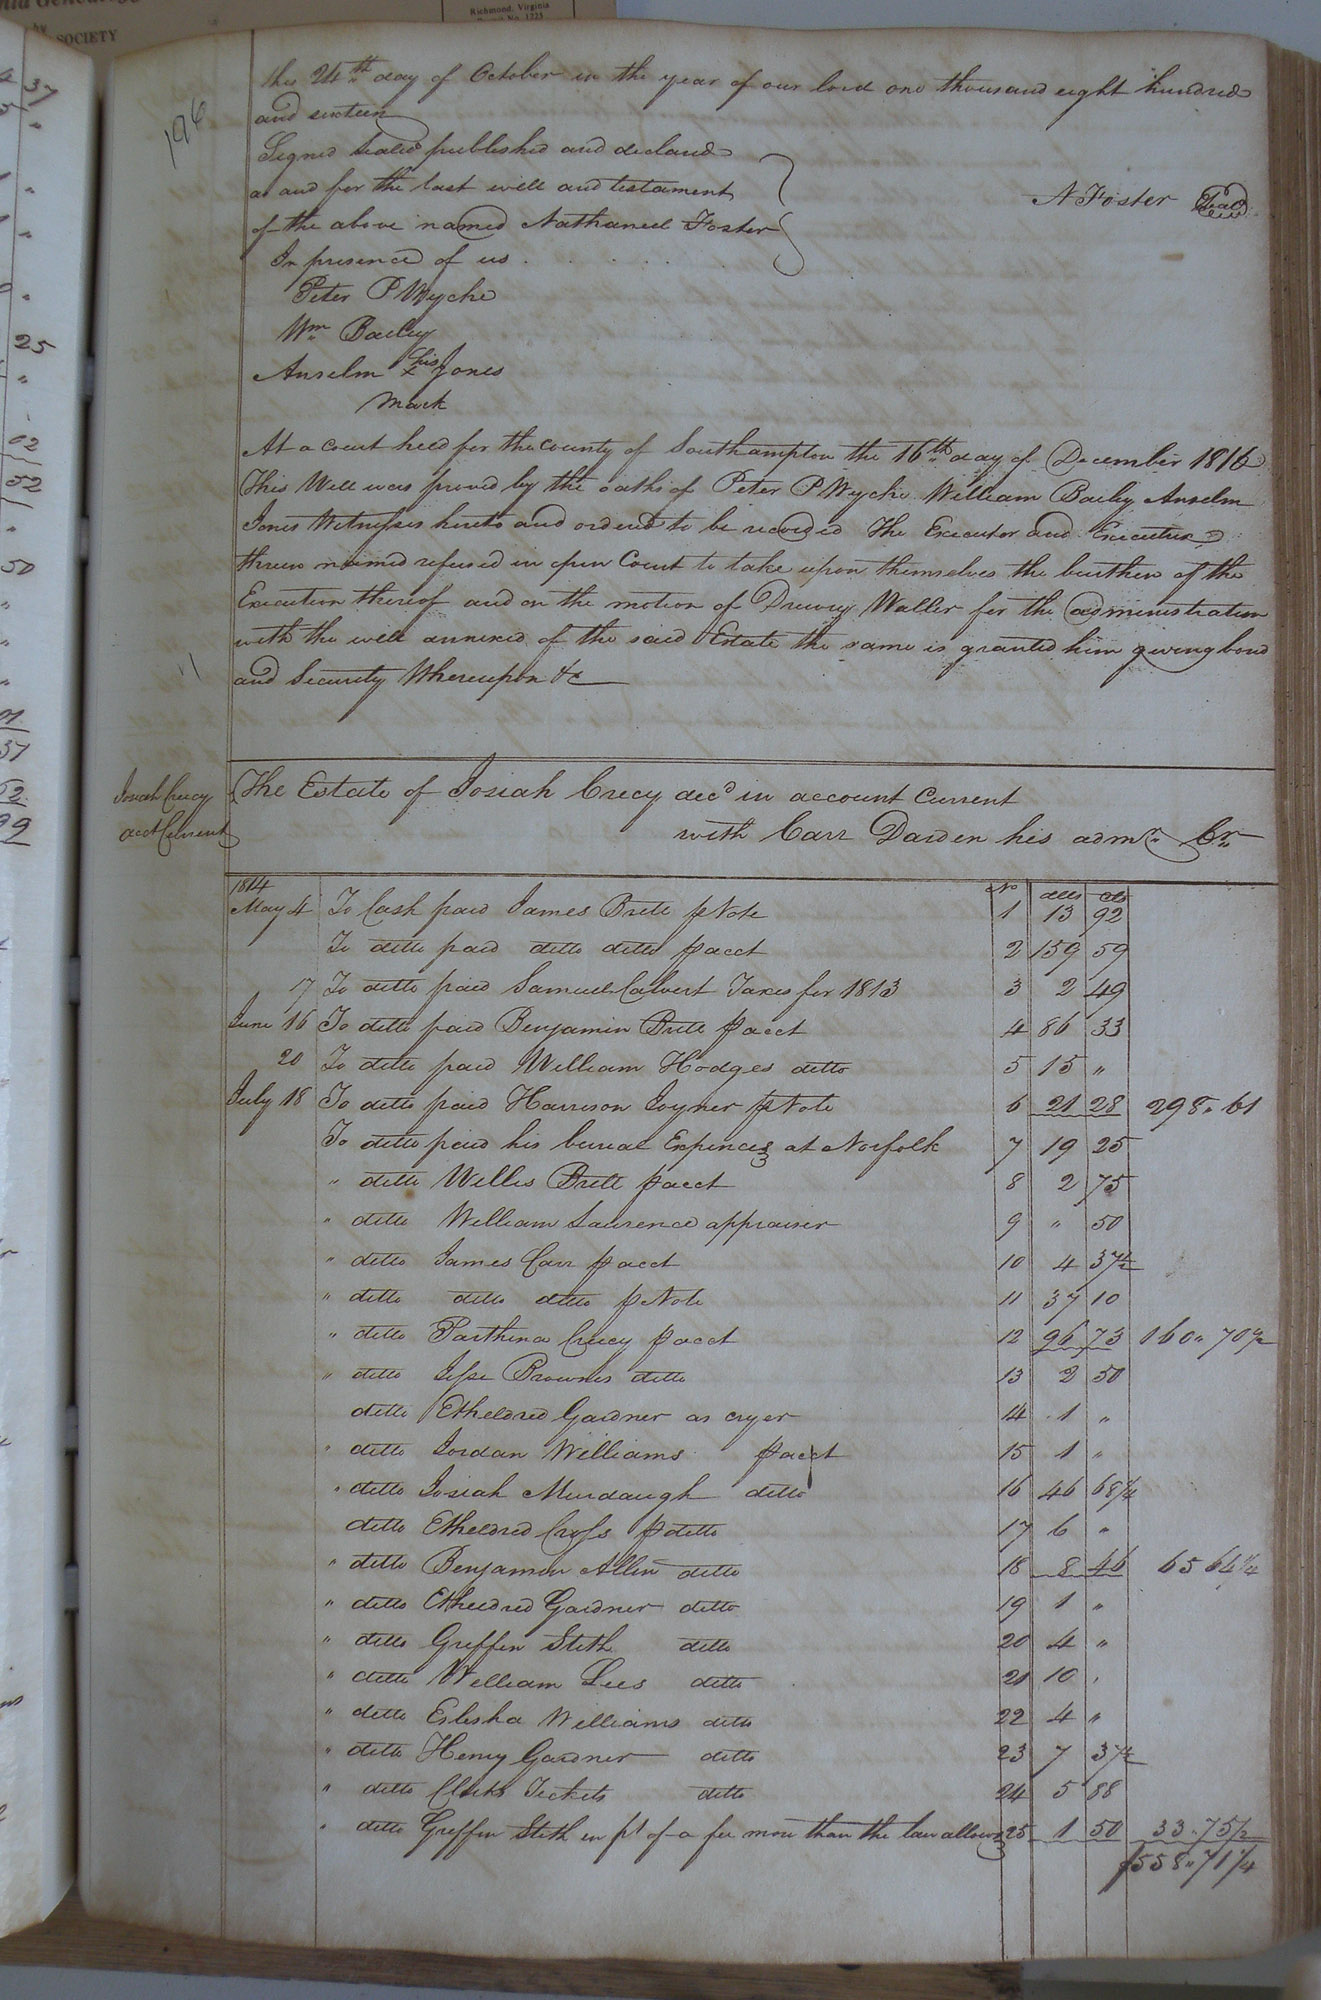 SOCIETY
Richmond, Virginia
196
the 24th day of October in the year of our lord one thousand eight hundred
and sixteen
Signed Sealed published and declared
as and for the last will and testament
N Foster Seal
of the above named Nathaniel Foster
In presence of us
Peter P Wyche
Wm Bailey
Anselm his x Jones
Mark
At a court held for the county of Southampton the 16th day of December 1816
This Will was proved by the oaths of Peter P Wyche William Bailey Anselm
Jones Witnesses hereto and ordered to be recorded The Executor and Executrix
therein named refused in open Court to take upon themselves the burthen of the
Execution thereof and on the motion of Drewry Waller for the administration
with the will annexed of the said Estate the same is granted him giving bond
and Security Whereupon &c
Josiah Crecy
acct Current
The Estate of Josiah Crecy decd in account Current
with Carr Darden his admr Cr
1814 No dlls cts
May 4 To Cash paid James Brett p Note 1 13 92
To ditto paid ditto ditto p acct 2 159 59
17 To ditto paid Samuel Calvert Taxes for 1813 3 2 49
June 16 To ditto paid Benjamin Brett p acct 4 86 33
20 To ditto paid William Hodges ditto 5 15 "
July 18 To ditto paid Harrison Joyner p Note 6 21 28 298 " 61
To ditto paid his burial Expences at Norfolk 7 19 25
" ditto Willis Brett p acct 8 2 75
" ditto William Laurence appraiser 9 " 50
" ditto James Carr p acct 10 4 37½
" ditto ditto ditto p Note 11 37 10
" ditto Parthena Crecy p acct 12 96 73 160 " 70½
" ditto Jesse Brownes ditto 13 2 50
ditto Etheldred Gardner as cryer 14 1 "
" ditto Jordan Williams p acct 15 1 "
" ditto Josiah Murdaugh ditto 16 46 68¼
ditto Etheldred Cross p ditto 17 6 "
" ditto Benjamin Allen ditto 18 8 46 65 64¼
" ditto Etheldred Gardner ditto 19 1 "
" ditto Griffin Stith ditto 20 4 "
" ditto William Lees ditto 21 10 "
" ditto Eslisha Williams ditto 22 4 "
" ditto Henry Gardner ditto 23 7 37½
" ditto Clerks Tickets ditto 24 5 88
" ditto Griffin Stith in pt of a fee more than the law allows 25 1 50 33 " 75½
$558 " 71¼